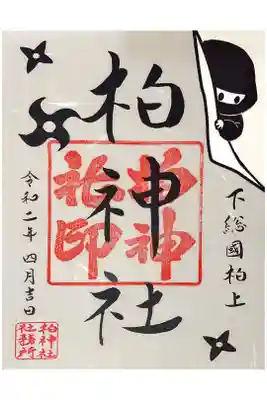 下総國柏上
柏神社
柏神社印
令和二年 四月吉日
柏神社
社務所